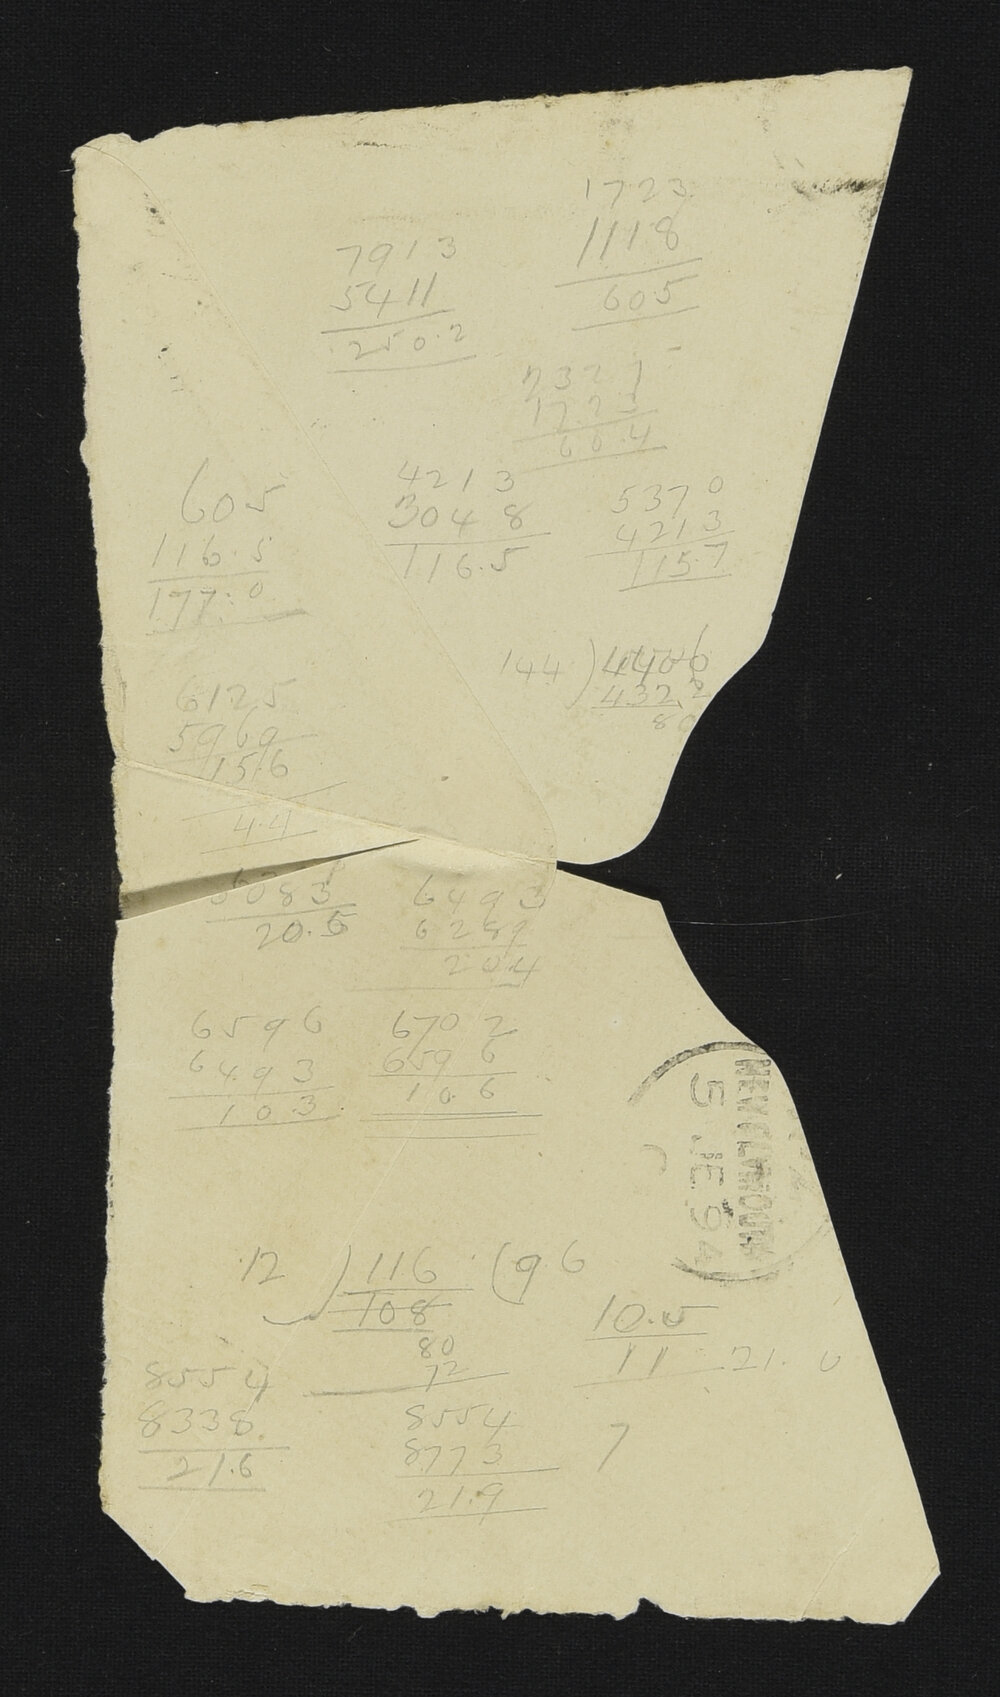 1723
1118
605
7913
5411
250.2
2321
1723
60.4
605
116.5
177.0
4213
3048
116.5
5370
4213
115.7
144 ) 4406
432
80
6125
5969
15.6
4.4
6083
20.5
6493
6289
204
6596
6493
10.3
6702
6596
10.6
5 JE 94
12 ) 116 ( 96
108
80
72
10.5
11 21.0
8554
8338
21.6
8554
8773
21.9
7